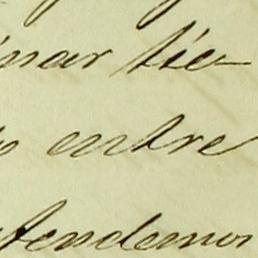 inar tie
entre
tendemos